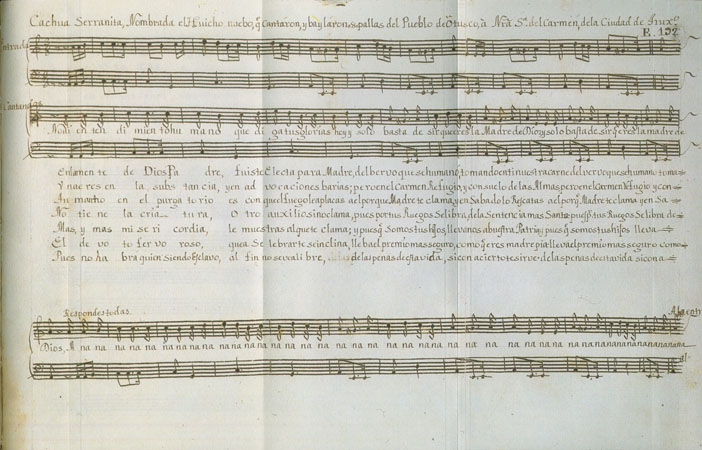 Cachua Serranita, Nombrada el Huicho nuebo, q̃ cantaron, y baylaron 8 pallas del Pueblo de Otusco, à Nrã Sã. del Carmen, de la Ciudad de Truxo.
E. 192
Entrada
Cantan
No ai en ten di mien to hu mano que di ga tus glorias hoy y solo basta de sir que eres la Madre de Dios y solo basta de sir q̃ eres la madre de
En la men te de Dios Pa dre, fuiste Electa para Madre, del bervo que se humano, tomando en ti nuestra carne del bervo que se humano toma
Y na ces en la subs tan cia, y en ad vocaciones barias; pero en el Carmen Refugio, y consuelo de las Almas pero en el Carmen Refugio y con
mucho en el purgatorio es con que el fuego le aplacas a el por que Madre te clama, y en Sabado lo Rescatas a el por q̃ Madre te clama y en Sa
No tie ne la cria tura, O tro auxilio si no clama, pues por tus Ruegos se libra, de la Sentencia mas Santa pues p.r tus Ruegos se libra de
Mas, y mas mi se ri cordia, le muestras al que te clama; y pues q̃ Somos tus hijos, llevanos a buestra Patria y pues q̃ somos tus hijos lleva
El de vo to fer vo roso, que a Selebrarte se inclina, lleba el premio mas seguro, como q̃ eres madre pia lleva el premio mas seguro como
Pues no ha bra quien siendo Esclavo, al fin no se vea li bre, de las penas de esta vida, si con acierto te sirve de las penas de esta vida si con a
Responde todas.
Dios. A na na na na na na na na na na na na na na na na na na na na na na na na na na na na na na na na na na
al